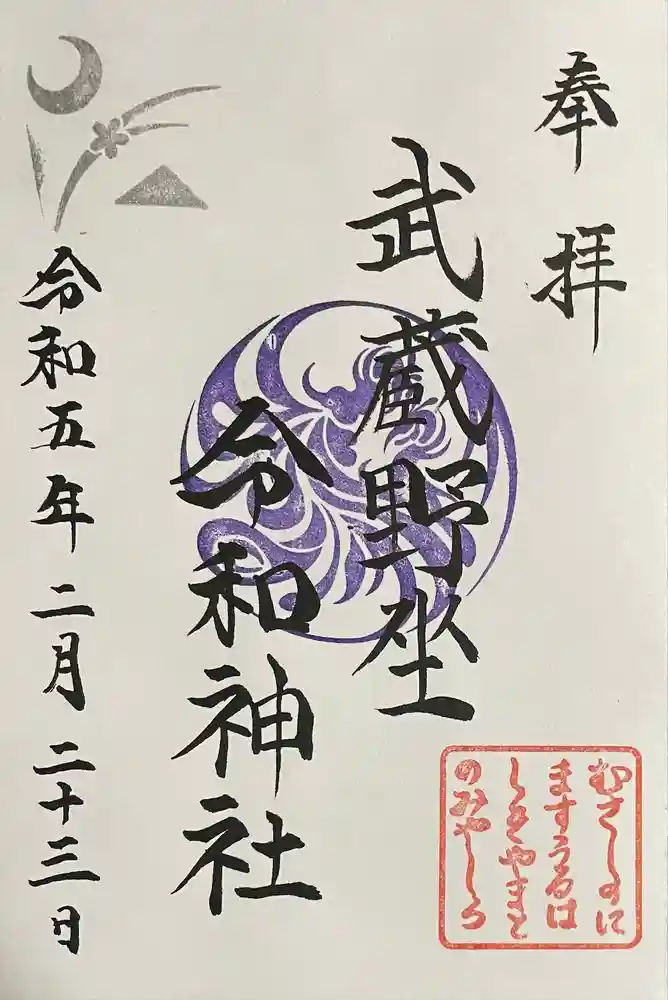 奉拝
武蔵野坐
令和神社
令和五年二月二十三日
むさしのに
ますうるは
しきやまと
のみやしろ